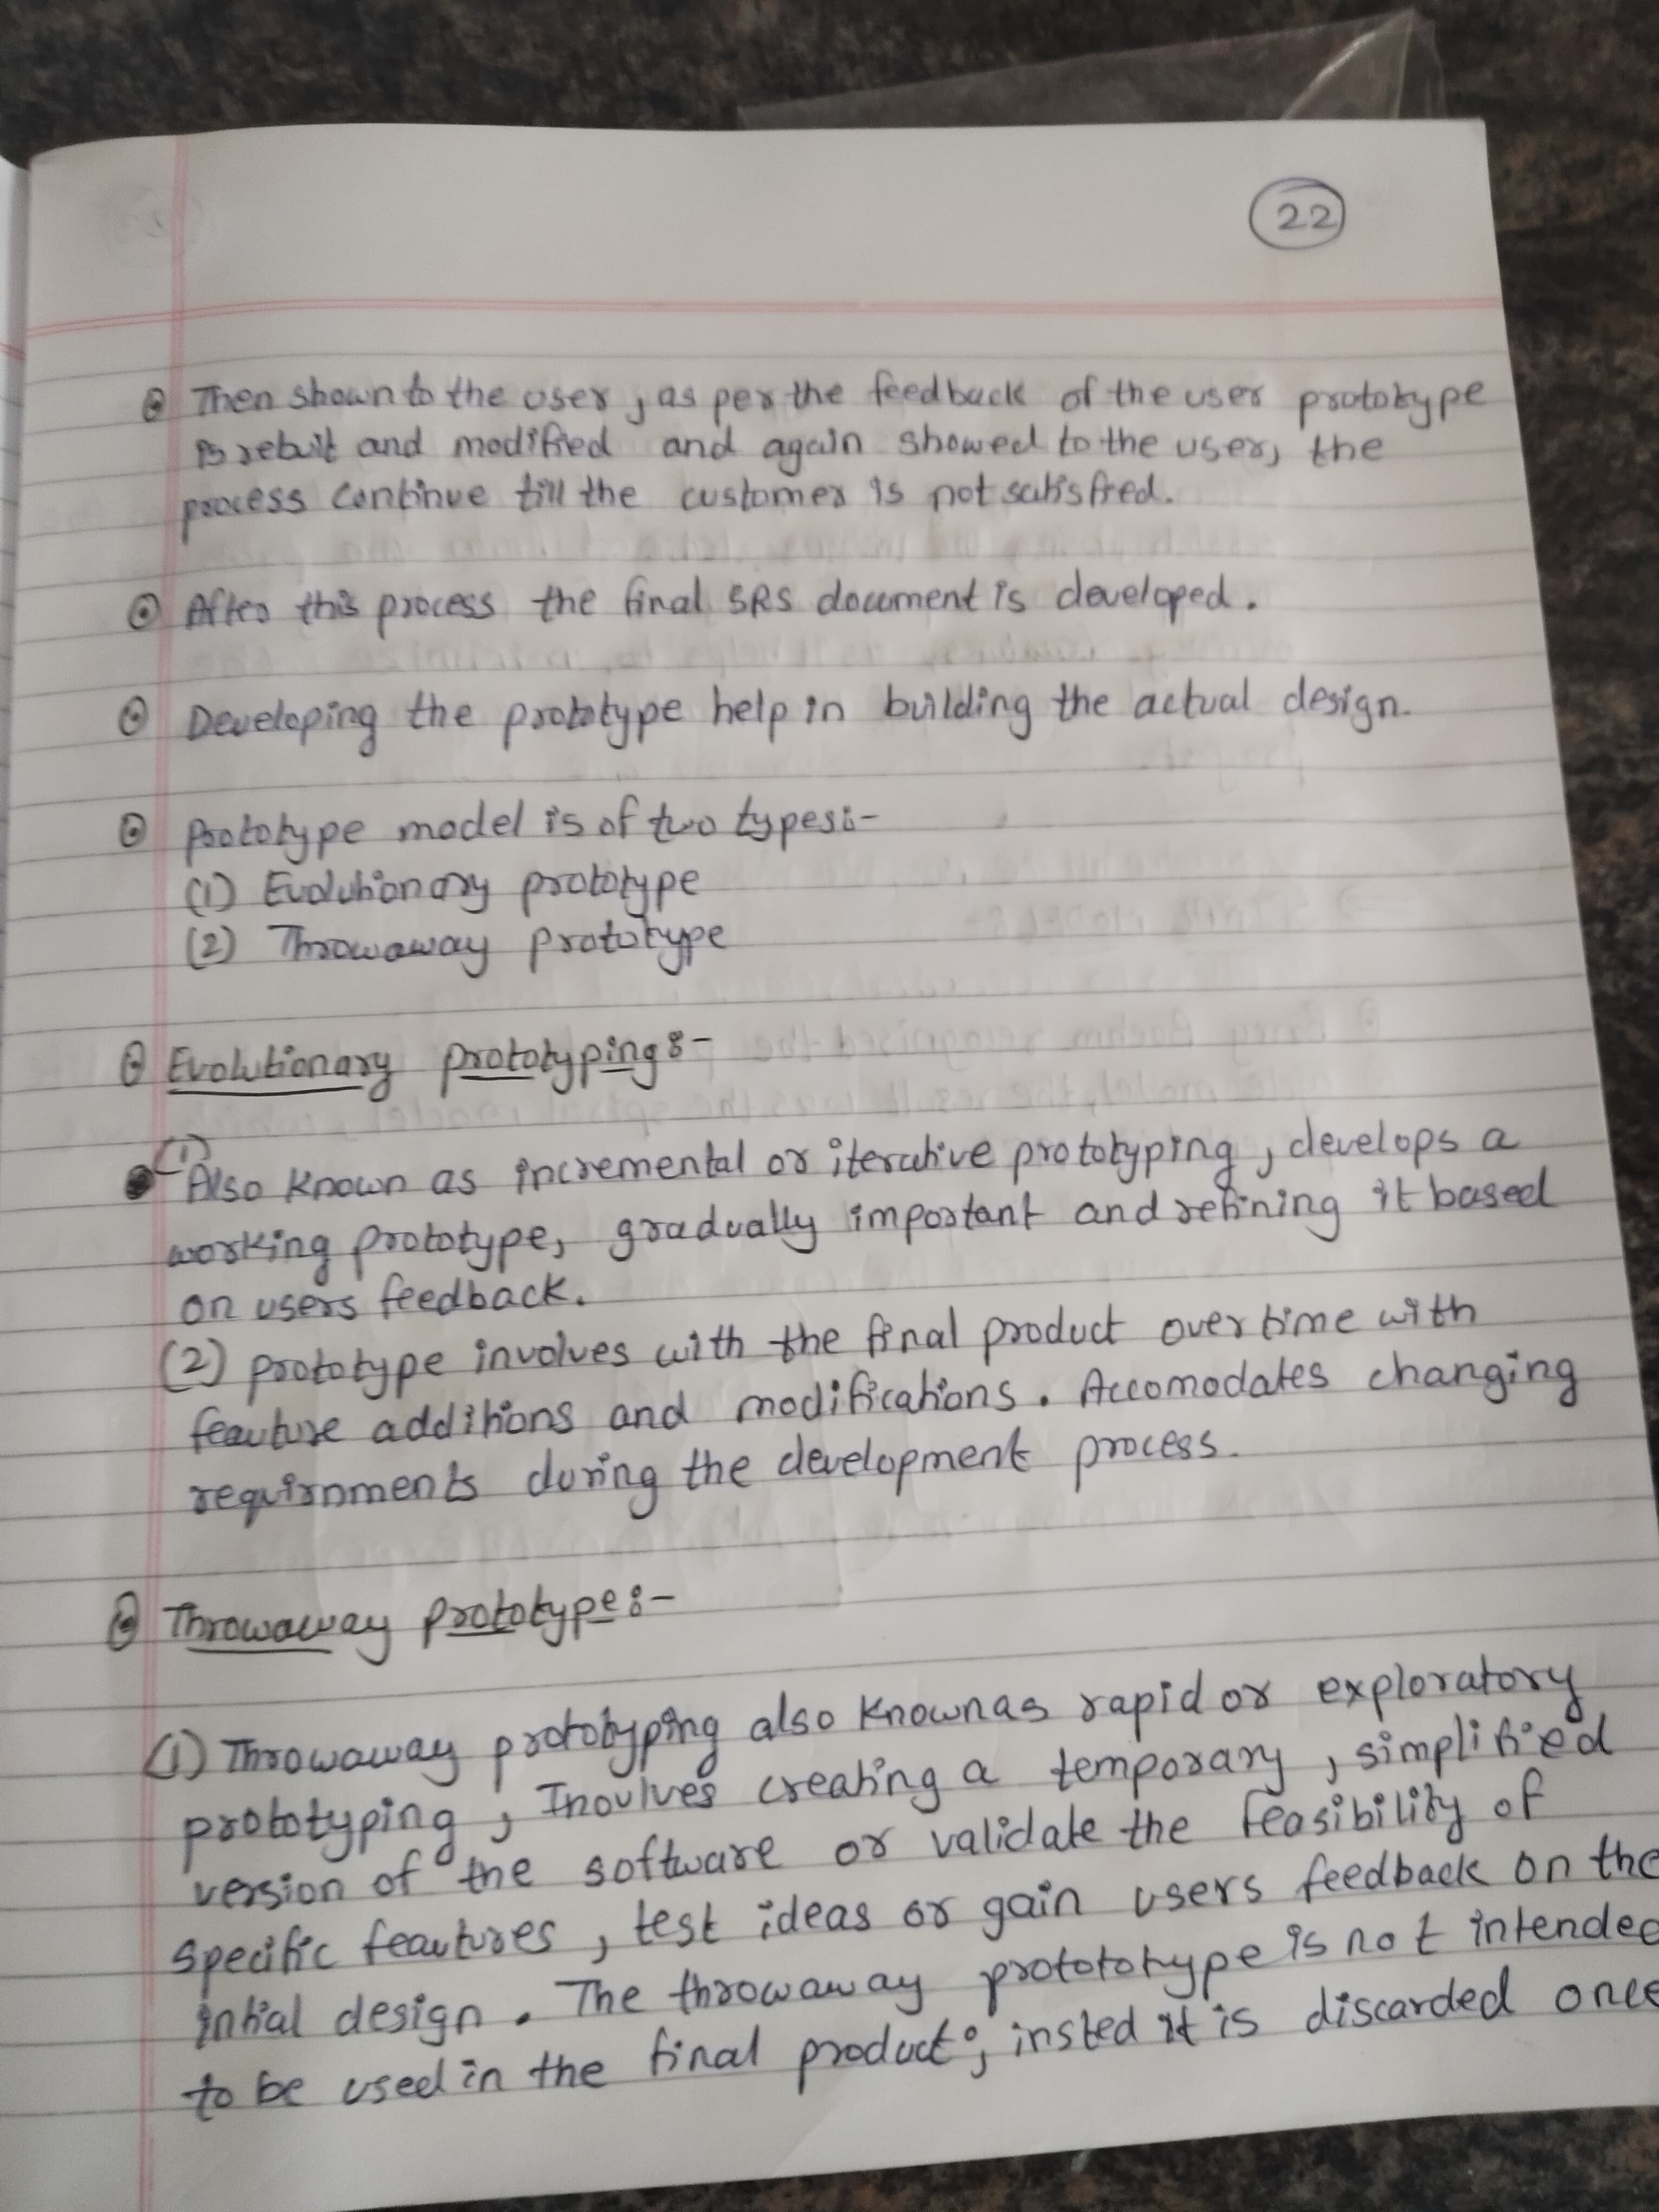 22
Then shown to the user, as per the feedback of the user prototype
is rebuit and modified and again showed to the user, the
process continue till the customer is not satisfied.
After this process the final SRS document is developed.
Developing the prototype help in building the actual design.
Prototype model is of two types:-
(1) Evolutionary prototype
(2) Throwaway prototype
Evolutionary prototyping:-
(1)
Also known as incremental or iterative prototyping, develops a
working prototype, gradually important and refining it based
on users feedback.
(2) prototype involves with the final product over time with
feauture additions and modifications. Accomodates changing
requirnments during the development process.
Throwaway prototype:-
(1) Throwaway prototyping also known as rapid or exploratory
prototyping, Inovlves creating a temporary, simplified
version of the software or validate the feasibility of
specific feautures, test ideas or gain users feedback on the
intial design. The throwaway protototype is not intended
to be used in the final product; insted it is discarded once